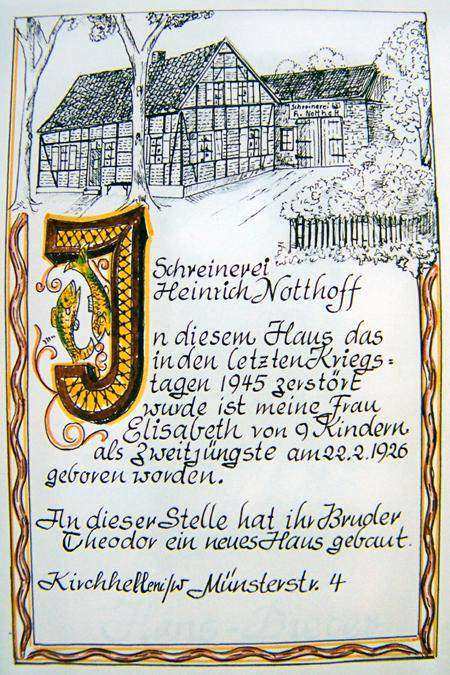 Schreinerei
H. Notthoff
Schreinerei
Heinrich Notthoff
In diesem Haus das
in den letzten Kriegs=
tagen 1945 zerstört
wurde ist meine Frau
Elisabeth von 9 Kindern
als zweitjüngste am 22.2.1926
geboren worden.
An dieser Stelle hat ihr Bruder
Theodor ein neues Haus gebaut.
Kirchhellen i/w Münsterstr. 4